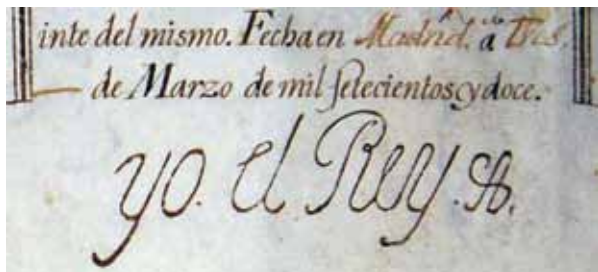 inte del mismo. Fecha en Madrid. a Tres.
de Marzo de mil ſetecientos y doce.
yo. el Rey.